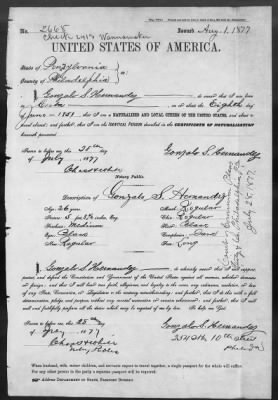 No. 2665
Issued Aug. 1, 1877
UNITED STATES OF AMERICA.
State of Pennsylvania
County of Philadelphia } ss:
I, Gonzalo S. Hernandez
born in Cuba on or about the Eighth day
of June 1851 AM A NATURALIZED AND LOYAL CITIZEN OF THE UNITED STATES, and about to
travel abroad; and further, that I am the IDENTICAL PERSON described in the CERTIFICATE OF NATURALIZATION
herewith presented.
Sworn to before me this 25th day
of July 1877
Gonzalo S. Hernandez
Notary Public.
Description of Gonzalo S. Hernandez
Age: 26 years
Mouth: Regular
Stature: 5 ft.
Chin: Regular
Forehead: Medium
Hair: Black
Eyes:
Complexion: Dark
Nose: Regular
Face: Long
I, Gonzalo S. Hernandez do solemnly swear that I will support,
protect and defend the Constitution and Government of the United States against all enemies, whether domestic
or foreign; and that I will bear true faith, allegiance and loyalty to the same, any ordinance, resolution or law
of any State, Convention, or Legislature to the contrary notwithstanding; and further, that I do this with a full
determination, pledge, and purpose, without any mental reservation or evasion whatsoever; and further, that I
will well and faithfully perform all the duties which may be required of me by law. So help me God.
Sworn to before me this 25th day
of July 1877
Gonzalo S. Hernandez
10th street
Phila Pa
When husband, wife, minor children, and servants expect to travel together, a single passport for the whole will suffice.
For any other person in the party a separate passport will be required.
ADDRESS DEPARTMENT OF STATE, PASSPORT BUREAU.